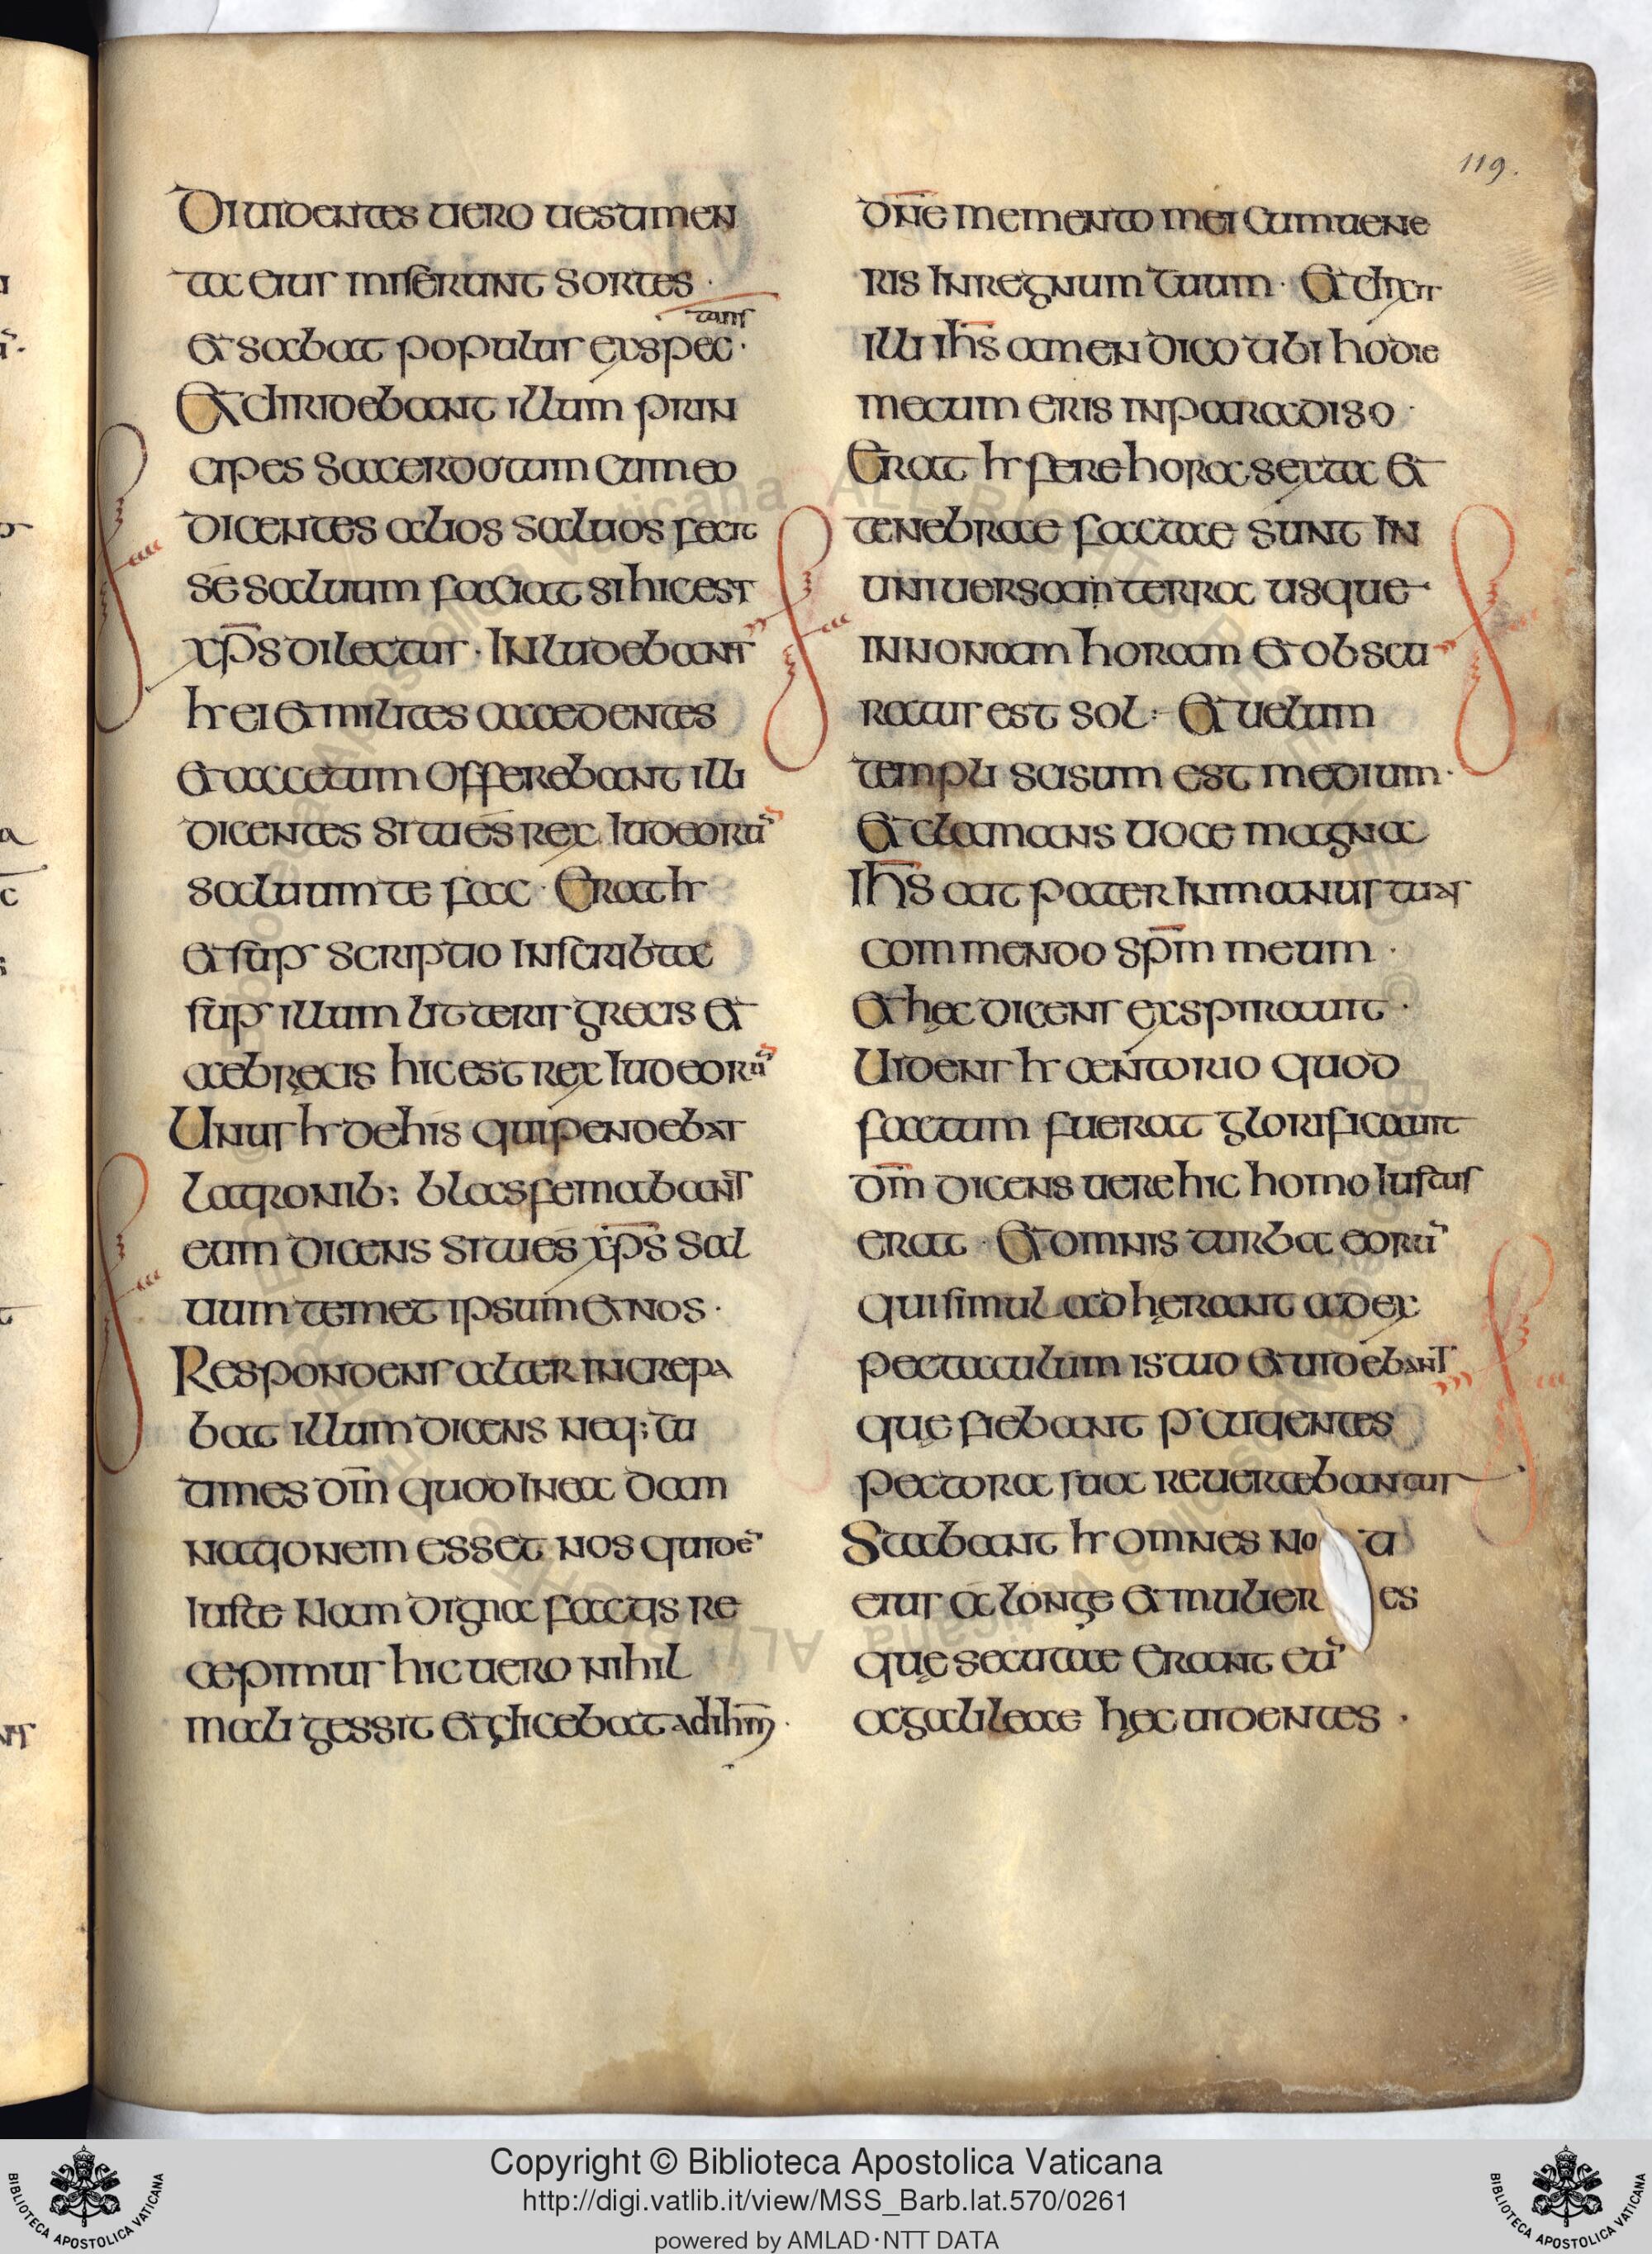 119.
Diuidentes uero uestimen
ta eius miserunt sortes ·
tans
et stabat populus exspec ·
Et diridebant illum prin
cipes sacerdotum cum eo
dicentes alios saluos fecit
se saluum faciat si hic est
xp̄s dilectus · Inludebant
hr ei et milites accedentes
et accetum offerebant illi
dicentes si tu es rex iudeorū
saluum te fac · Erat hr
et sup scriptio inscribta
sup illum litteris grecis et
aebręcis hic est rex iudeorū
Unus hr de his qui pendebat
latronib; blasfemabant
eum dicens si tu es xp̄s sal
uum temet ipsum et nos ·
Respondens alter increpa
bat illum dicens neq; tu
times dm̄ quod in ea dam
nationem esset nos quidē
iuste nam digna factis re
cepimus hic uero nihil
mali gessit et dicebat ad ihm̄ ·
dnē memento mei cum uene
ris in regnum tuum · Et dixit
illi ihs̄ amen dico tibi hodie
mecum eris in paradiso ·
Erat hr fere hora sexta et
tenebrae factae sunt in
uniuersam terra usque
in nonam horam et obscu
ratus est sol : Et uelum
templi scisum est medium ·
Et clamans uoce magna
Ihs̄ ait pater in manus tuas
commendo spm̄ meum ·
Et hęc dicens exspirauit ·
Uidens hr centorio quod
factum fuerat glorificauit
dm̄ dicens uere hic homo iustus
erat · Et omnis turba eorū
qui simul ad herant ad ex
pectaculum istuo et uidebant
quę fiebant p cutientes
pectora sua reuertebantur
Stabant hr omnes no ti
eius a longe et mulier es
quę secutae erant eū
a galileae hęc uidentes ·
Copyright © Biblioteca Apostolica Vaticana
http://digi.vatlib.it/view/MSS_Barb.lat.570/0261
powered by AMLAD·NTT DATA
BIBLIOTECA APOSTOLICA VATICANA
BIBLIOTECA APOSTOLICA VATICANA